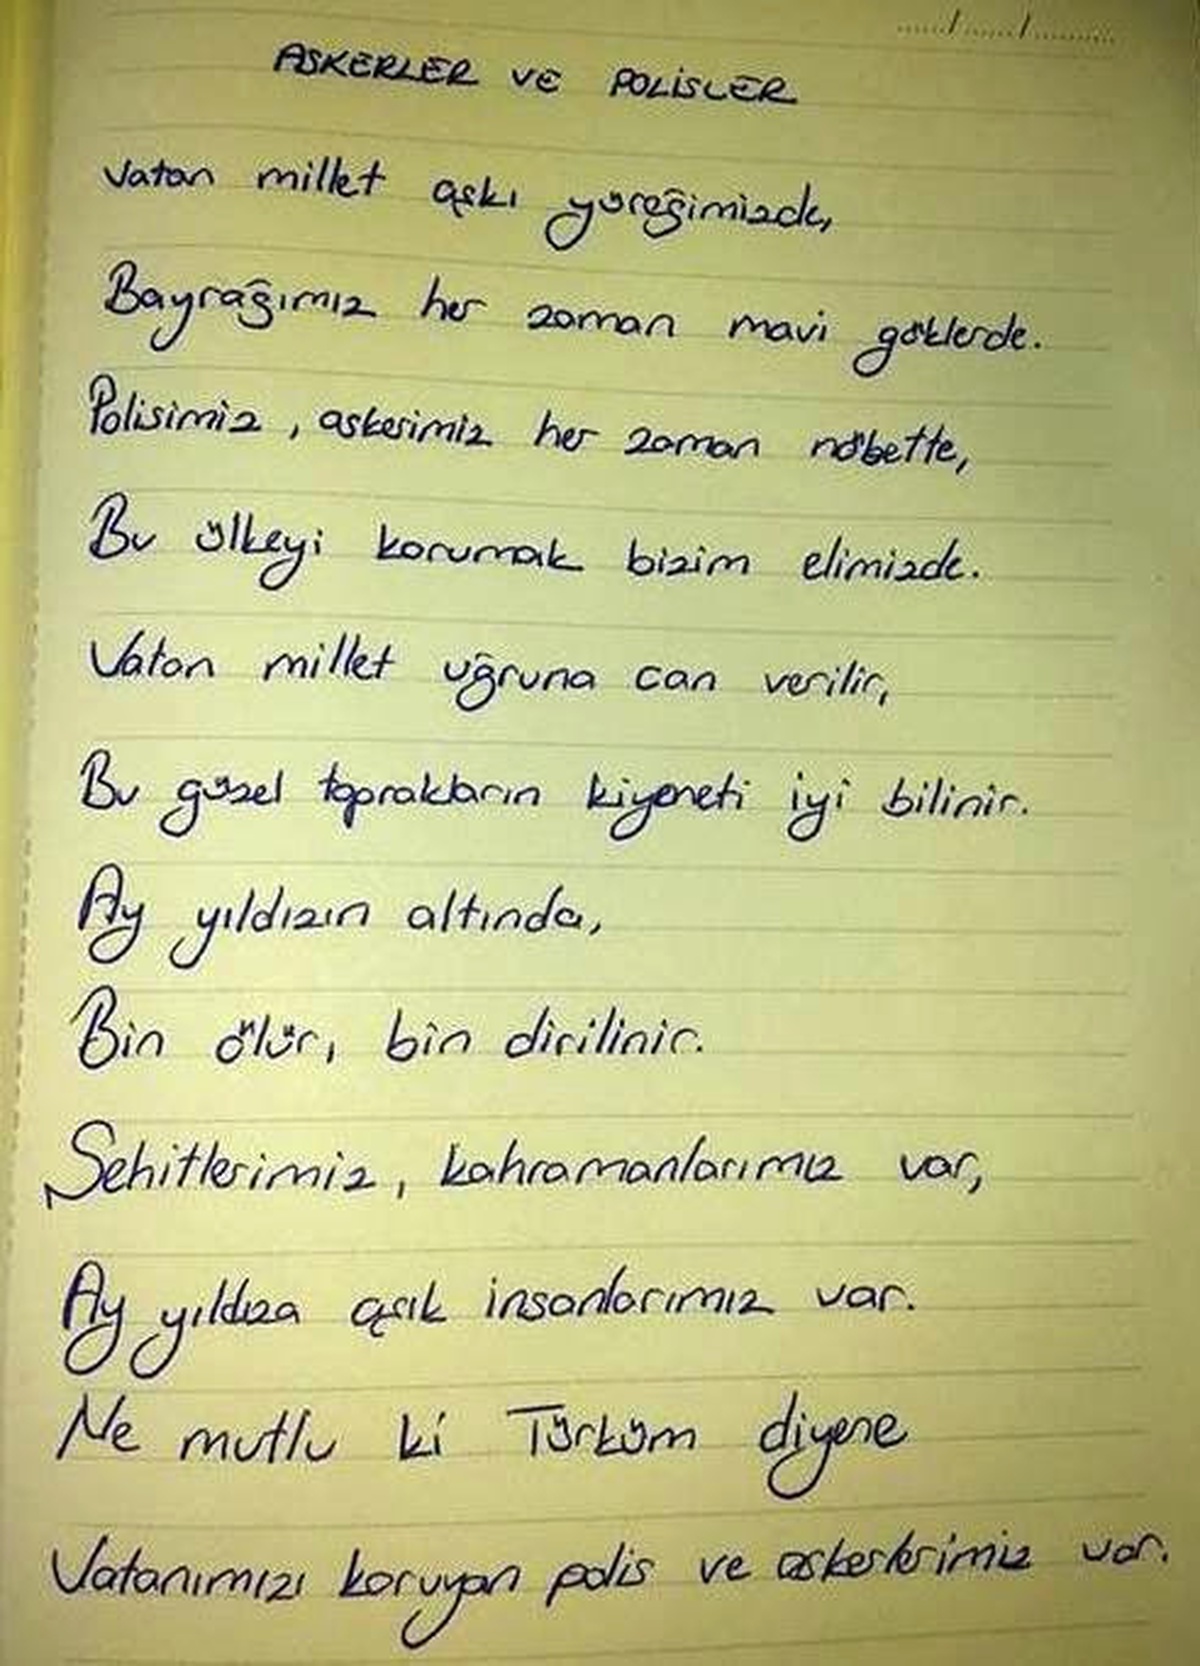 ASKERLER VE POLİSLER
Vatan millet aşkı yüreğimizde,
Bayrağımız her zaman mavi göklerde.
Polisimiz, askerimiz her zaman nöbette,
Bu ülkeyi korumak bizim elimizde.
Vatan millet uğruna can verilir,
Bu güzel toprakların kiyeneti iyi bilinir.
Ay yıldızın altında,
Bin ölür, bin dirilinir.
Şehitlerimiz, kahramanlarımız var,
Ay yıldıza aşık insanlarımız var.
Ne mutlu ki Türküm diyene
Vatanımızı koruyan polis ve askerlerimiz var.